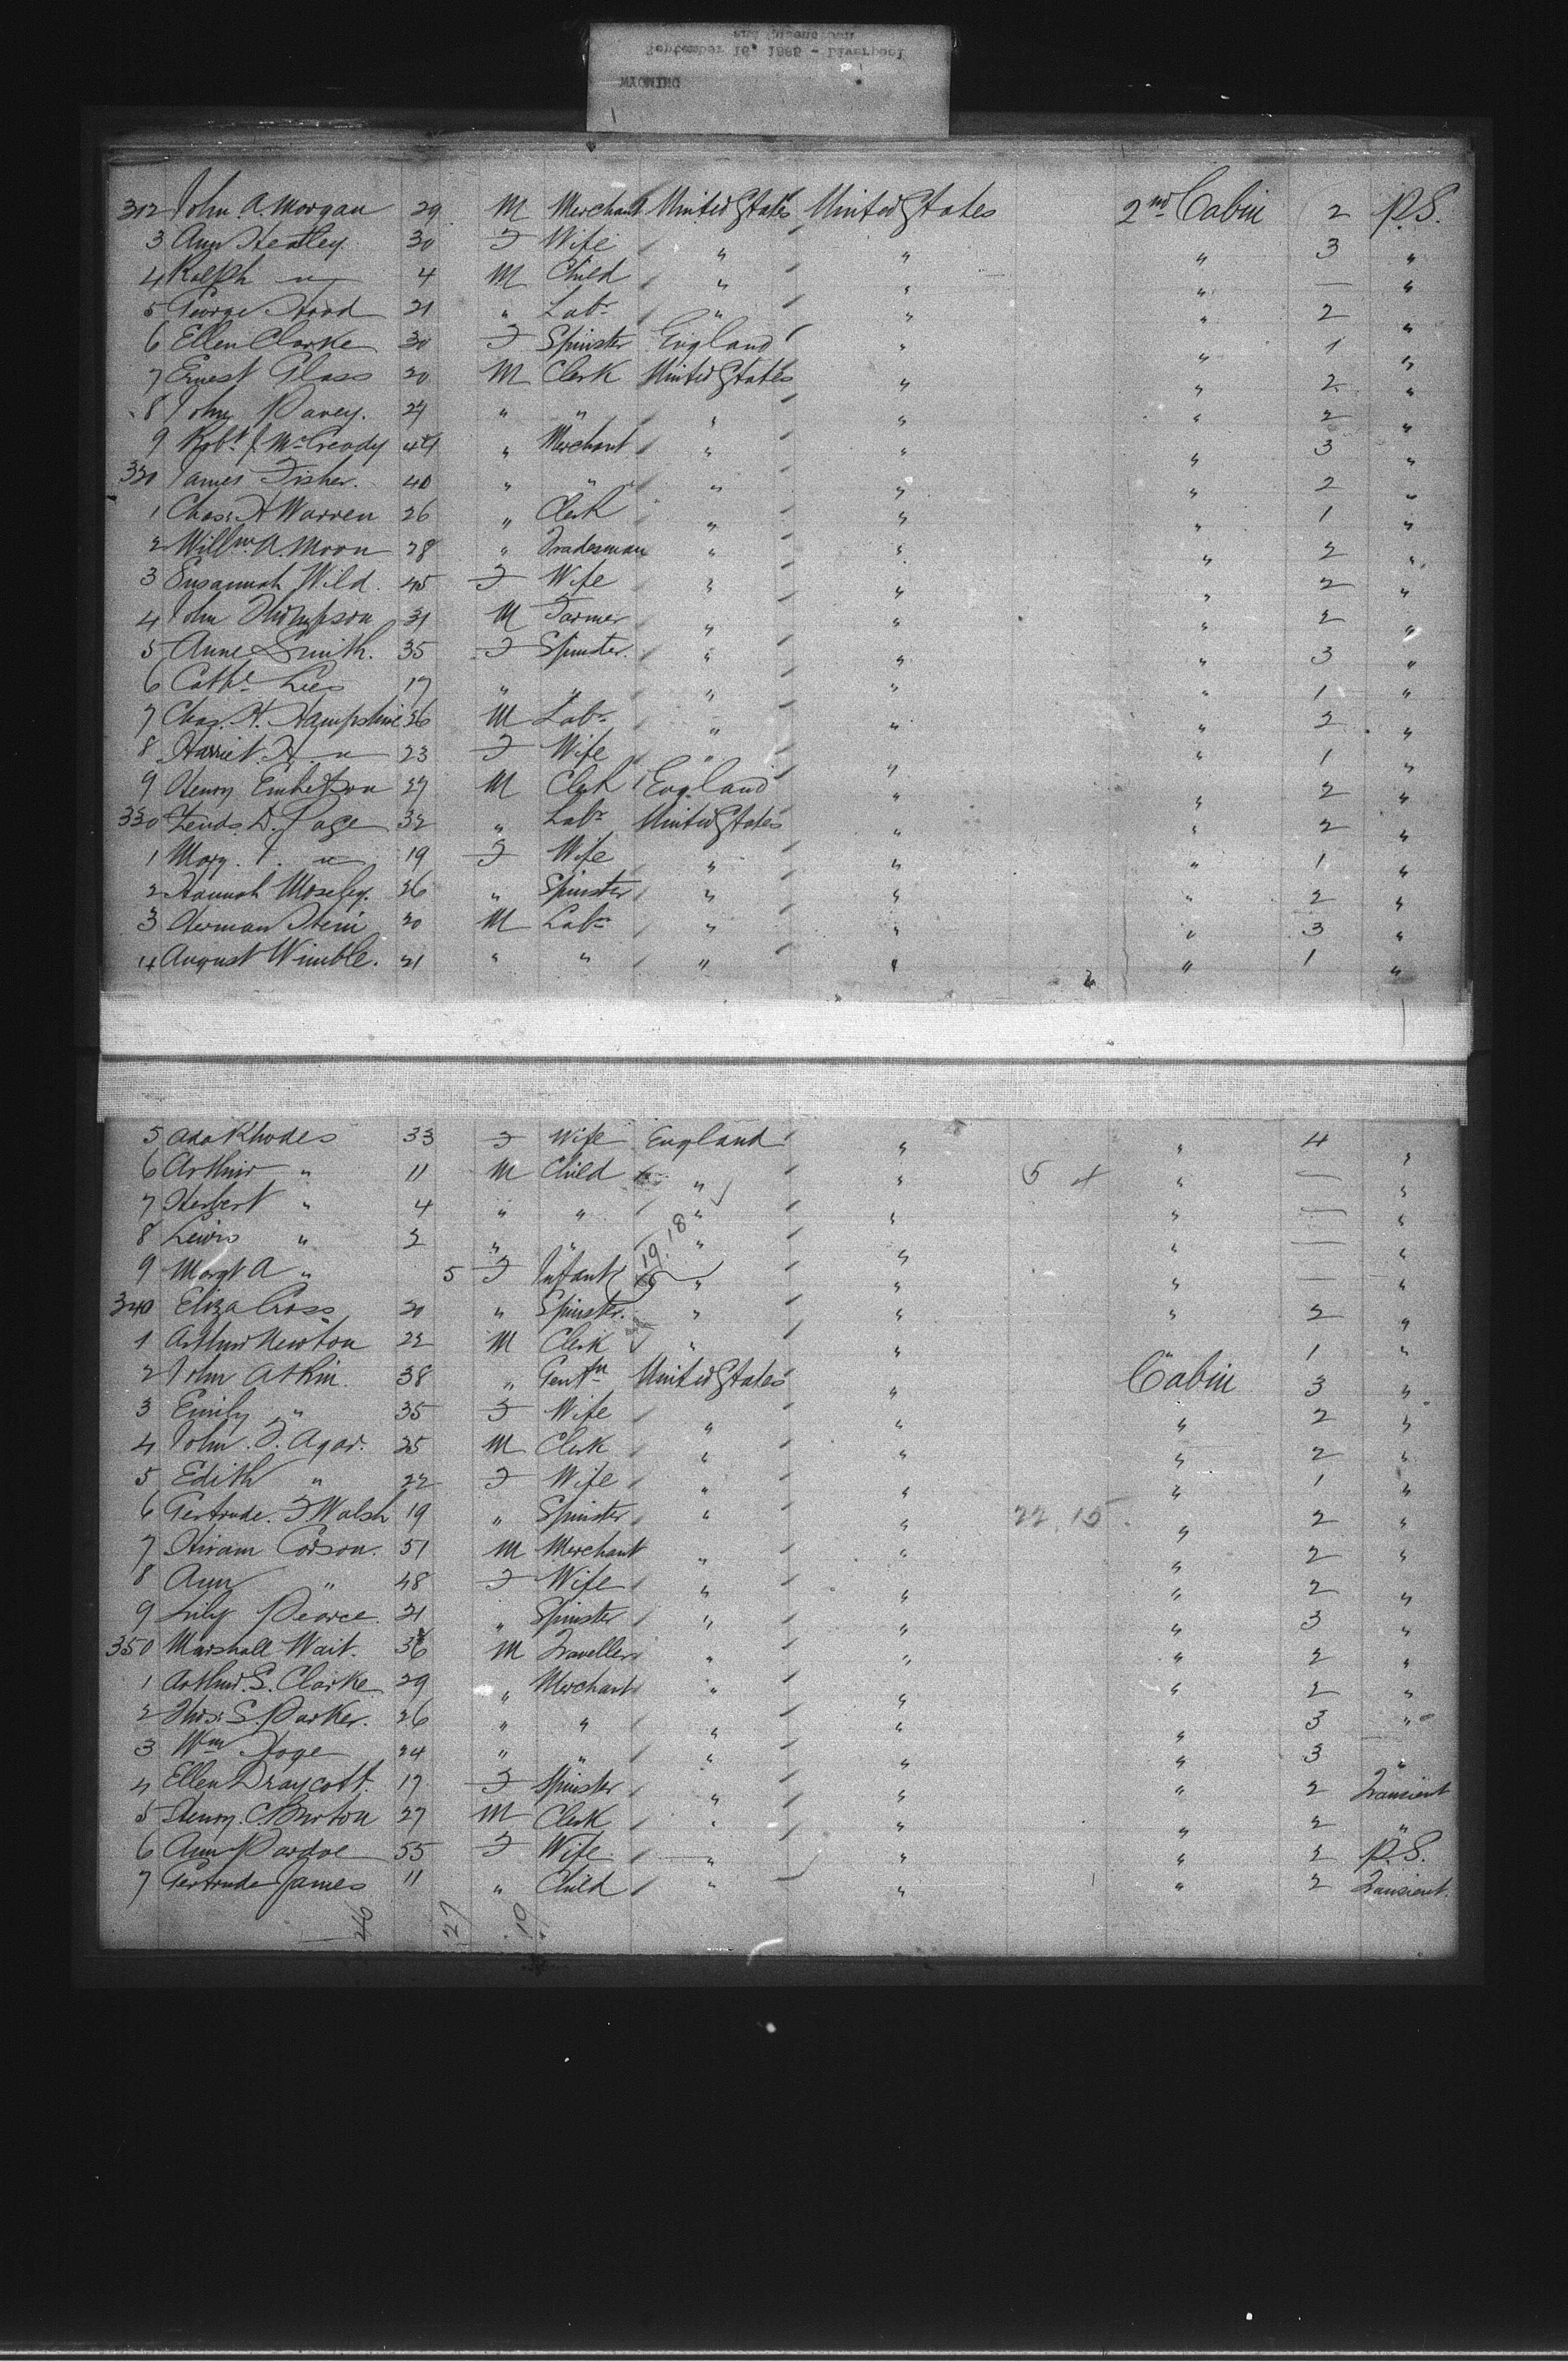 WYOMING
September 16, 1886 - Liverpool
and Queenstown
312 John A. Morgan 29 M Merchant United States United States 2nd Cabin 2 P.S.
3 Ann Heatley 30 F Wife " " " 3 "
4 Ralph " 4 M Child " " " — "
5 George Hood 21 " Labr " " " 2 "
6 Ellen Clarke 30 F Spinster England " " 1 "
7 Ernest Glass 20 M Clerk United States " " 2 "
8 John Pavey. 24 " " " " " 2 "
9 Robt J McCready 44 " Merchant " " " 3 "
320 James Fisher. 40 " " " " " 2 "
1 Chas. H Warren 26 " Clerk " " " 1 "
2 Willm. A. Moon 28 " Tradesman " " " 2 "
3 Susannah Wild. 45 F Wife " " " 2 "
4 John Thompson 31 M Farmer " " " 2 "
5 Anne Smith. 35 F Spinster. " " " 3 "
6 Cathe Lees 17 " " " " " 1 "
7 Chas. H. Hampshire 26 M Labr " " " 2 "
8 Harriet. H " 23 F Wife " " " 1 "
9 Henry 27 M Clerk England " " 2 "
330 D. Page 32 " Labr United States " " 2 "
1 Mary. " 19 F Wife " " " 1 "
2 Hannah Moseley. 26 " Spinster " " " 2 "
3 Herman Stein 20 M Labr " " " 3 "
4 August Wimble. 21 " " " " " 1 "
5 Ada Rhodes 33 F Wife England " " 4 "
6 Arthur " 11 M Child " " 5 + " — "
7 Herbert " 4 " " " " " — "
8 Lewis " 2 " " " " " — "
9 Margt A " 5 F Infant " " " — "
19.18
340 Eliza Cross 20 " Spinster. " " " 2 "
1 Arthur Newton 22 M Clerk " " " 1 "
2 John Atkin. 38 " Gentn United States " Cabin 3 "
3 Emily " 35 F Wife " " " 2 "
4 John. F. Agar. 25 M Clerk " " " 2 "
5 Edith " 22 F Wife " " " 1 "
6 Gertrude. F Walsh 19 " Spinster " " 22.15. " 2 "
7 Hiram Corson. 51 M Merchant " " " 2 "
8 Ann " 48 F Wife " " " 2 "
9 Lily Pearce. 21 " Spinster " " " 3 "
350 Marshall Wait. 36 M Traveller " " " 2 "
1 Arthur. S. Clarke 29 " Merchant " " " 2 "
2 Thos. S. Parker. 26 " " " " " 3 "
3 Wm Hoge 24 " " " " " 3 "
4 Ellen Draycott. 17 F Spinster " " " 2 Transient
5 Henry. C. Burton 27 M Clerk " " " 2 "
6 Ann Pardoe 55 F Wife " " " 2 P.S.
7 Gertrude James 11 " Child " " " 2 Transient.
46 27 19